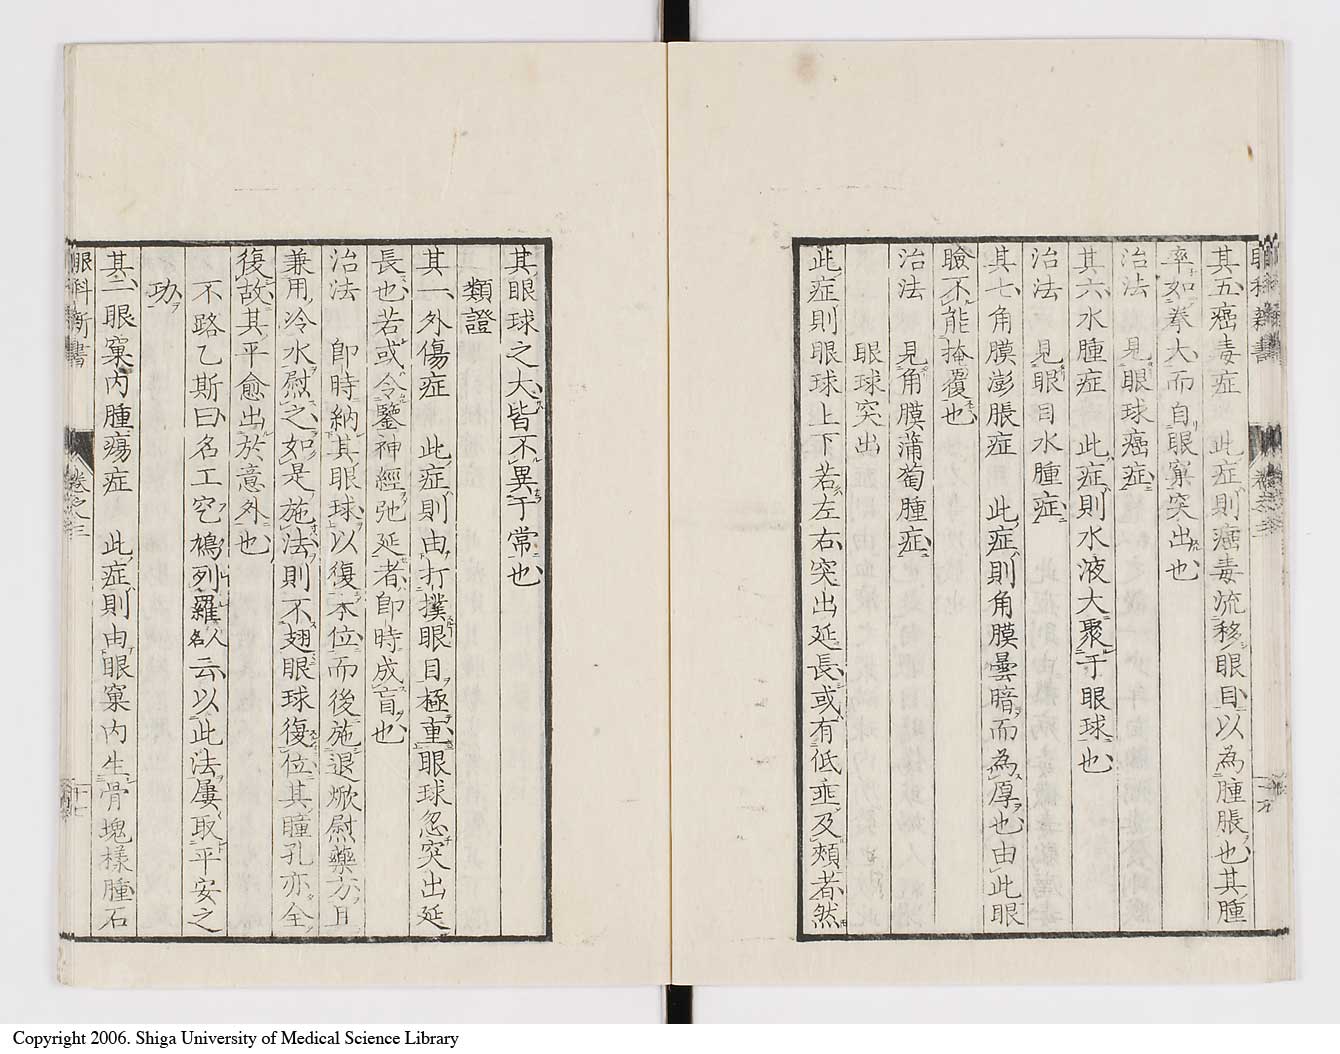 其五癌毒症　此症則癌毒流移眼目以為腫脹也其腫
率如拳大而自眼窠突出也
治法　見眼球癌症
其六水腫症　此症則水液大聚于眼球也
治法　見眼目水腫症
其七角膜澎脹症　此症則角膜曇暗而為厚也由此眼
瞼不能掩覆也
治法　見角膜蒲萄腫症
眼球突出
此症則眼球上下若左右突出延長或有低垂及頰者然
其眼球之大皆不異于常也
類證
其一外傷症　此症則由打撲眼目極重眼球忽突出延
長也若或令鑒神經弛延者卽時成盲也
治法　卽時納其眼球以復本位而後施退焮慰藥方且
兼用冷水慰之如是施法則不翅眼球復位其瞳孔亦全
復故其平愈出於意外也
不路乙斯曰名工空鳩列羅人名云以此法屢取平安之
功
其二眼窠内腫瘍症　此症則由眼窠内生骨塊樣腫石
眼科新書
卷之三
十七
Copyright 2006. Shiga University of Medical Science Library